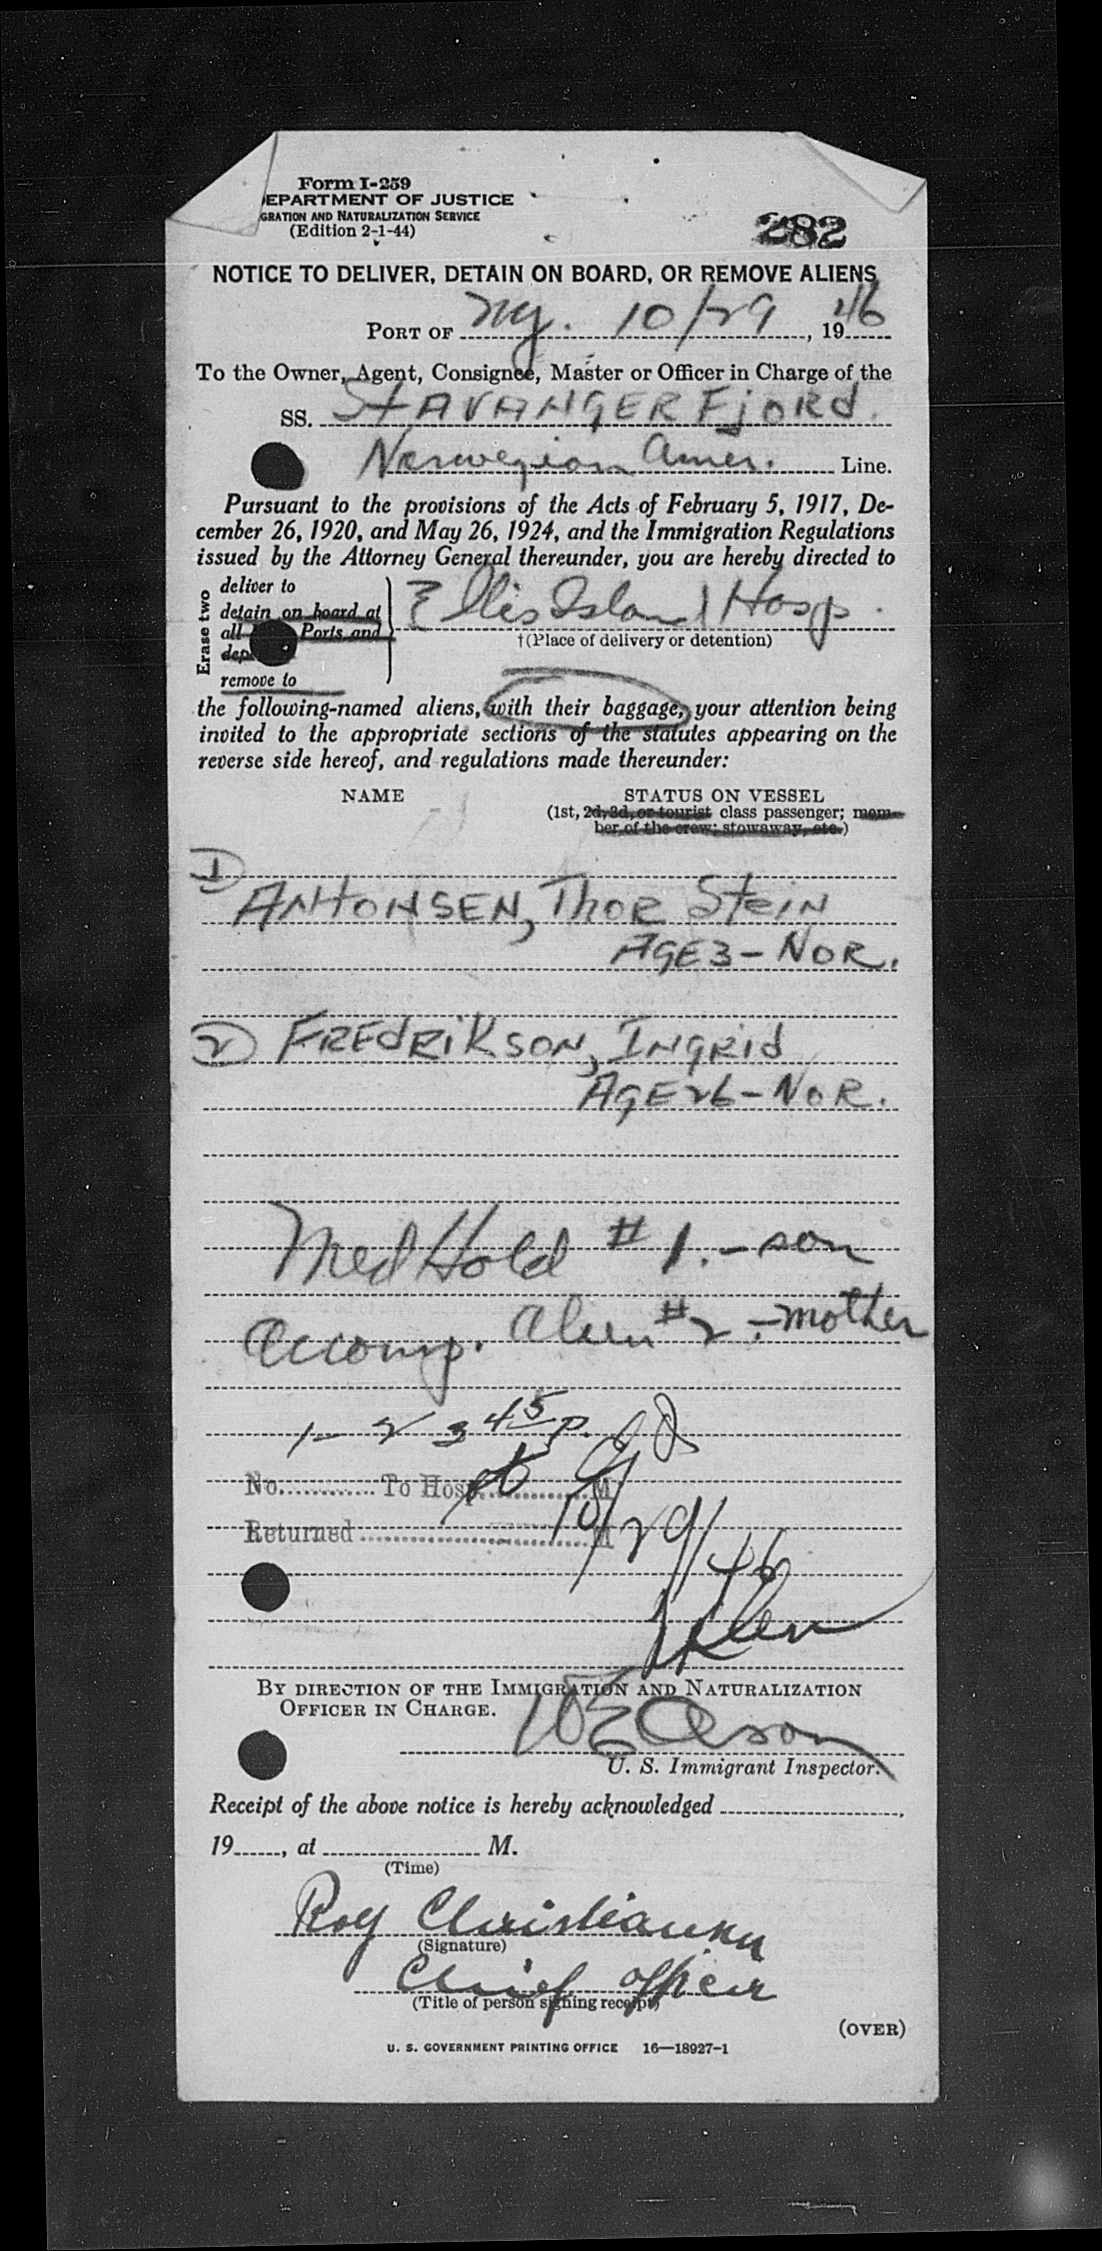 Form I-259
DEPARTMENT OF JUSTICE
GRATION AND NATURALIZATION SERVICE
(Edition 2-1-44)
282
NOTICE TO DELIVER, DETAIN ON BOARD, OR REMOVE ALIENS
PORT OF NY. 10/29, 1946
To the Owner, Agent, Consignee, Master or Officer in Charge of the
SS. STAVANGER FJORD.
Norwegian Amer. Line.
Pursuant to the provisions of the Acts of February 5, 1917, De-
cember 26, 1920, and May 26, 1924, and the Immigration Regulations
issued by the Attorney General thereunder, you are hereby directed to
Erase two
deliver to
detain on board at
all Ports and
dep
remove to
Ellis Island Hosp.
†(Place of delivery or detention)
the following-named aliens, with their baggage, your attention being
invited to the appropriate sections of the statutes appearing on the
reverse side hereof, and regulations made thereunder:
NAME STATUS ON VESSEL
(1st, 2d, 3d, or tourist class passenger; mem-
ber of the crew; stowaway, etc.)
1 ANTONSEN, THOR STEIN
AGE 3 - NOR.
2 FREDRIKSON, INGRID
AGE 26 - NOR.
Med Hold #1. - son
Accomp. Alien #2 - mother
1 - 2 3 45 p.
No. To Hosp. M
10/29/46
Returned M
BY DIRECTION OF THE IMMIGRATION AND NATURALIZATION
OFFICER IN CHARGE.
U. S. Immigrant Inspector.
Receipt of the above notice is hereby acknowledged
19, at M.
(Time)
Roy Christiansen
(Signature)
Chief officer
(Title of person signing receipt)
(OVER)
U. S. GOVERNMENT PRINTING OFFICE 16—18927-1